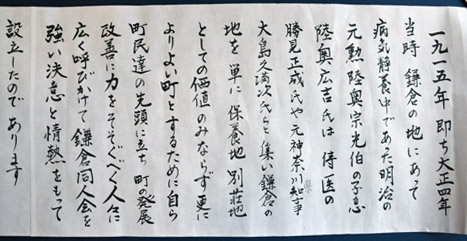 一九一五年 即ち大正四年
当時 鎌倉の地にあって
病気静養中であった明治の
元勲陸奥宗光伯の子息
陸奥広吉氏は 侍医の
勝見正成氏や元神奈川県知事
大島久満次氏らと集い鎌倉の
地を 単に 保養地 別荘地
としての価値のみならず 更に
よりよい町とするために自ら
町民達の先頭に立ち 町の発展
改善に力をそそぐべく人々に
広く呼びかけて 鎌倉同人会を
強い決意と情熱をもって
設立したのであります